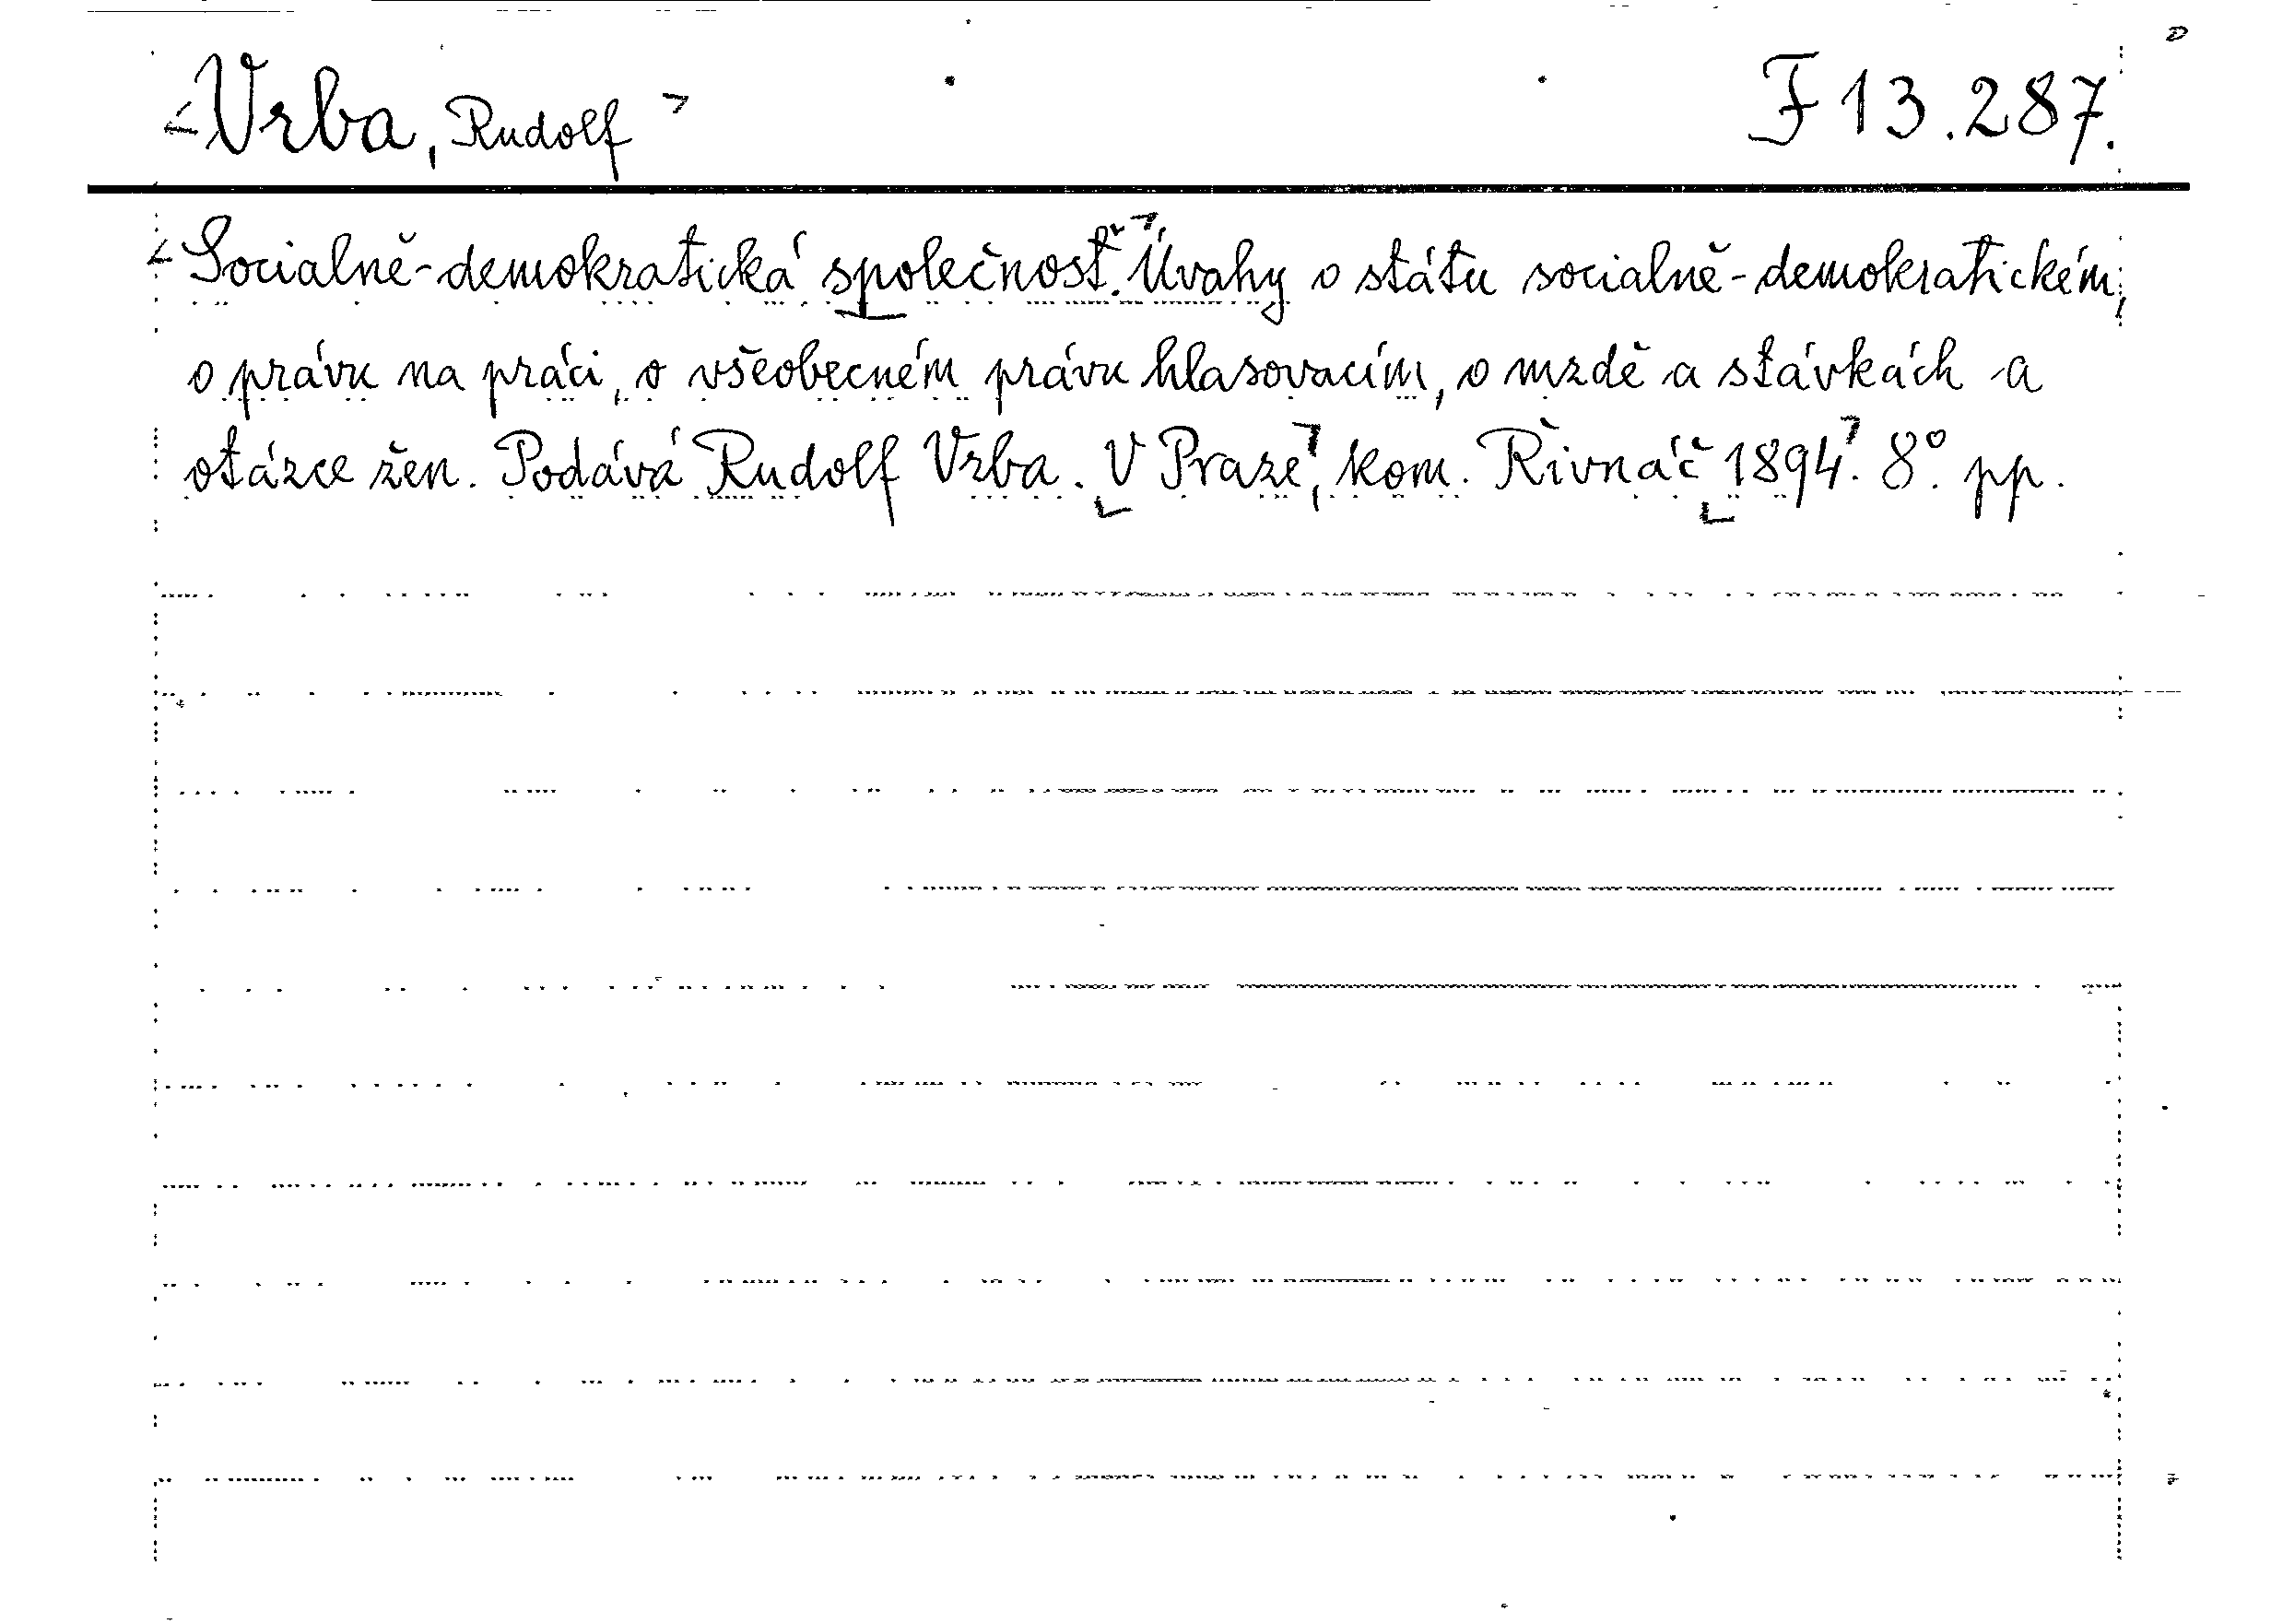 Vrba, Rudolf F 13.287.
Socialně-demokratická společnosť. Úvahy o státu socialně-demokratickém,
o právu na práci, o všeobecném právu hlasovacím, o mzdě a stávkách a
otázce žen. Podává Rudolf Vrba. V Praze, kom. Řivnáč 1894. 8°. pp.